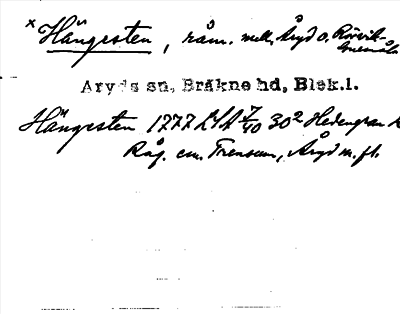 x Hängesten, råm. mell. Åryd o. Rörvik-
Aryds sn, Bräkne hd, Blek.l.
Hängesten 1777 LSA 7/40 30² Hedengran k
Råg. em. Trensum, Åryd m.fl.